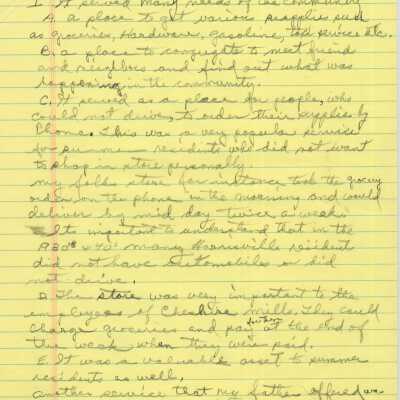 I. It served many needs of the community
A. a place to get various supplies such
as groceries, hardware, gasoline, taxi service etc.
B. a place to congregate to meet friend
and neighbors and find out what was
happening in the community.
C. It served as a place for people, who
could not drive, to order their supplies by
Phone. This was a very popular service
for summer residents who did not want
to shop in store personally.
my folks store for instance took the grocery
order on the phone in the morning and would
deliver by mid day twice a week.
It's important to understand that in the
1930's & 40's many Harrisville resident
did not have automobiles or did
not drive.
D. The store was very important to the
employees of Cheshire Mills. They could
Charge groceries and pay for them at the end of
the week when they were paid.
E. It was a valuable asset to summer
residents as well.
another service that my father offered was